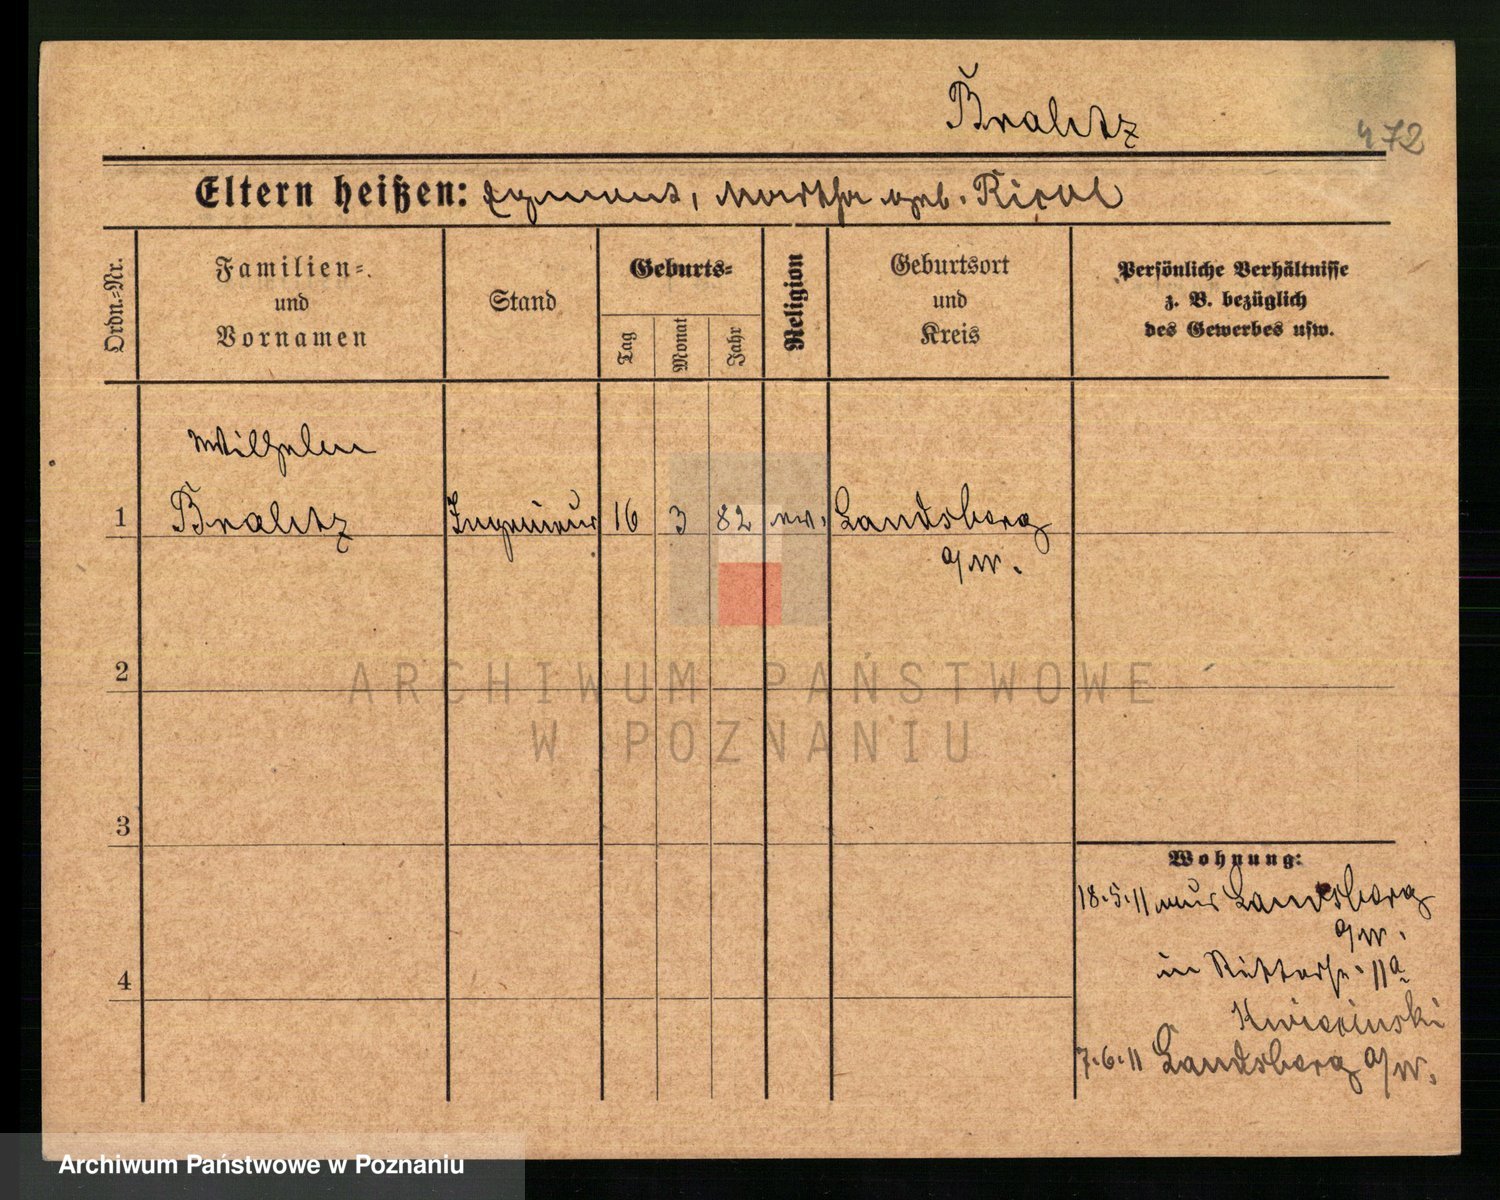 Bralitz
472
Eltern heißen: Egmont, Martha geb.
Ordn.=Nr.
Familien=
und
Vornamen
Stand
Geburts=
Tag
Monat
Jahr
Religion
Geburtsort
und
Kreis
Persönliche Verhältnisse
z. B. bezüglich
des Gewerbes usw.
Wilhelm
1 Bralitz Ingenieur 16 3 82 ev. Landsberg
a/W.
2
3
4
Wohnung:
18.5.11 aus Landsberg
a/W.
in Ritterstr. 11a
7.6.11 Landsberg a/W.
ARCHIWUM PAŃSTWOWE
W POZNANIU
Archiwum Państwowe w Poznaniu